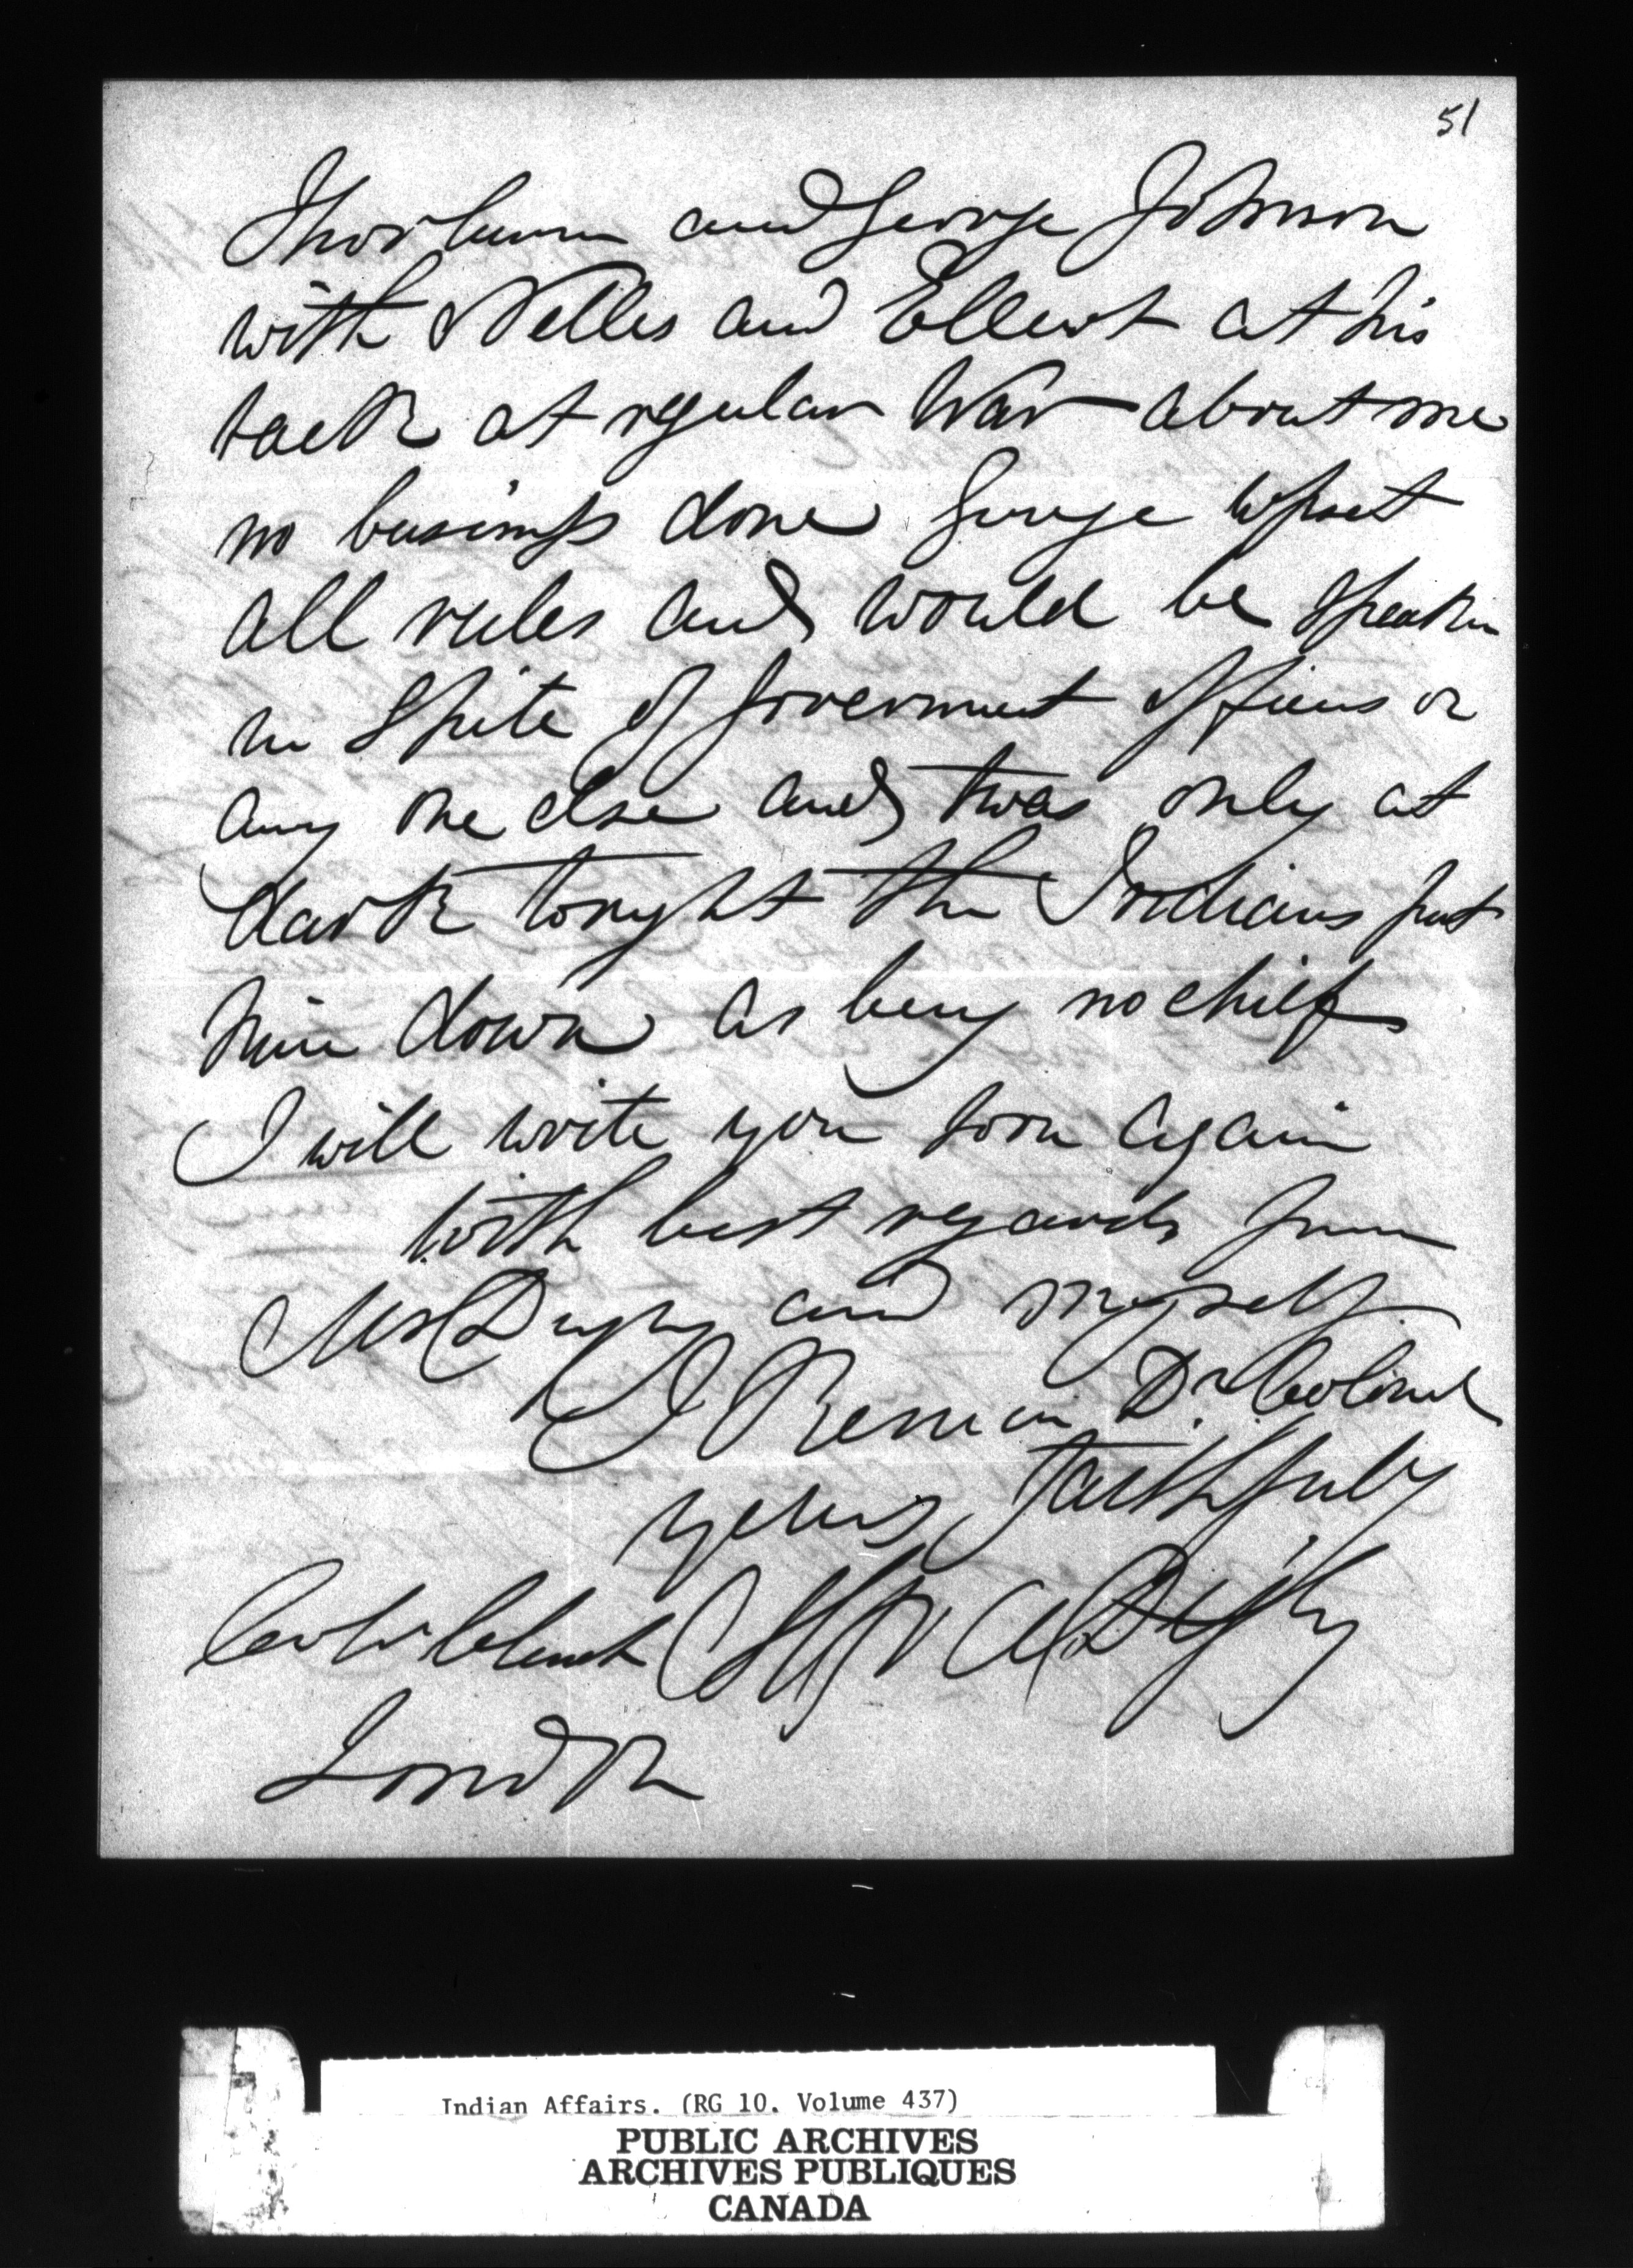 51
Thorburn and George Johnson
with Nelles and Elleot at his
back at regular War about me
no business done George upset
all rules and would be speakin
in Spite of Goverment officers or
any one else and twas only at
dark tonight the Indians put
him down as being no chief
I will write you soon again
with best regards from
Mrs Digby and myself
I Remain Dr Colonel
yours faithfully
Col Clench Digby
London
Indian Affairs. (RG 10. Volume 437)
PUBLIC ARCHIVES
ARCHIVES PUBLIQUES
CANADA